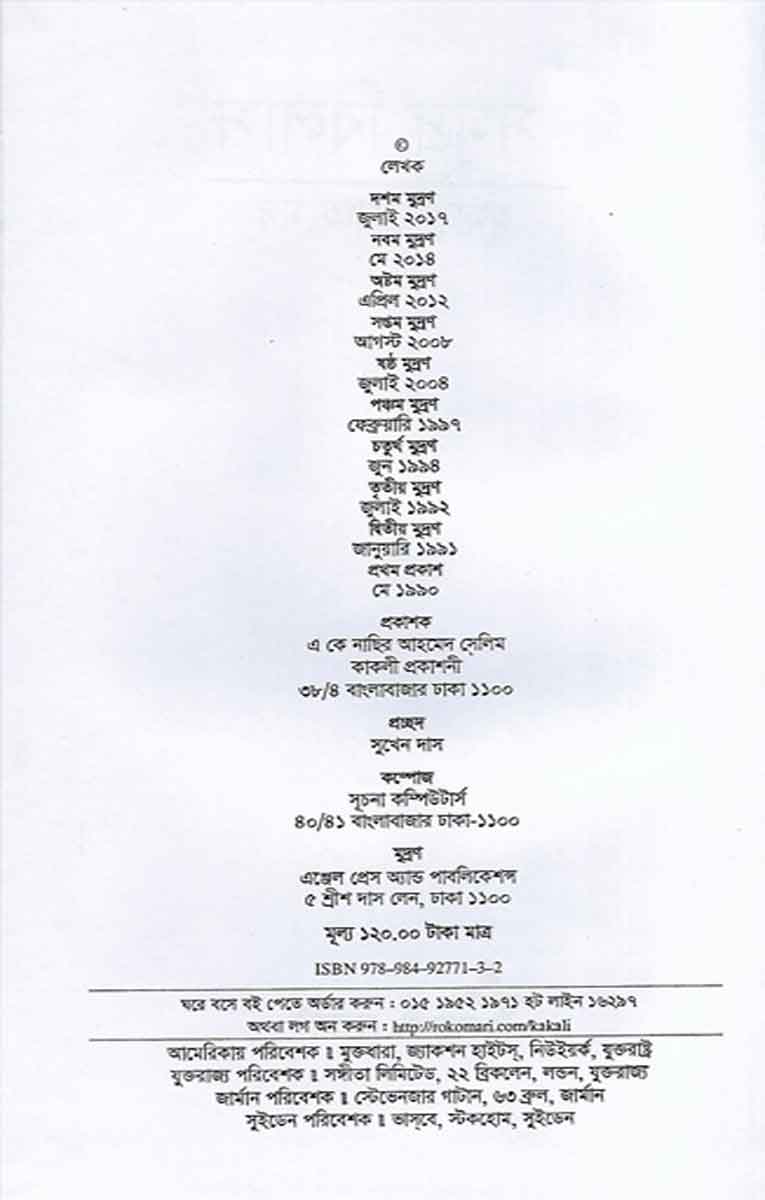 ©
লেখক
দশম মুদ্রণ
জুলাই ২০১৭
নবম মুদ্রণ
মে ২০১৪
অষ্টম মুদ্রণ
এপ্রিল ২০১২
সপ্তম মুদ্রণ
আগস্ট ২০০৮
ষষ্ঠ মুদ্রণ
জুলাই ২০০৪
পঞ্চম মুদ্রণ
ফেব্রুয়ারি ১৯৯৭
চতুর্থ মুদ্রণ
জুন ১৯৯৪
তৃতীয় মুদ্রণ
জুলাই ১৯৯২
দ্বিতীয় মুদ্রণ
জানুয়ারি ১৯৯১
প্রথম প্রকাশ
মে ১৯৯০
প্রকাশক
এ কে নাছির আহমেদ সেলিম
কাকলী প্রকাশনী
৩৮/৪ বাংলাবাজার ঢাকা ১১০০
প্রচ্ছদ
সুখেন দাস
কম্পোজ
সূচনা কম্পিউটার্স
৪০/৪১ বাংলাবাজার ঢাকা-১১০০
মুদ্রণ
এঞ্জেল প্রেস অ্যান্ড পাবলিকেশন্স
৫ শ্রীশ দাস লেন, ঢাকা ১১০০
মূল্য ১২০.০০ টাকা মাত্র
ISBN 978-984-92771-3-2
ঘরে বসে বই পেতে অর্ডার করুন : ০১৫ ১৯৫২ ১৯৭১ হট লাইন ১৬২৯৭
অথবা লগ অন করুন : http://rokomari.com/kakali
আমেরিকায় পরিবেশক ঃ মুক্তধারা, জ্যাকশন হাইটস্, নিউইয়র্ক, যুক্তরাষ্ট্র
যুক্তরাজ্য পরিবেশক ঃ সঙ্গীতা লিমিটেড, ২২ ব্রিকলেন, লন্ডন, যুক্তরাজ্য
জার্মান পরিবেশক ঃ স্টেভেনজার গার্টান, ৬৩ ব্রুল, জার্মান
সুইডেন পরিবেশক ঃ ভাস্বে, স্টকহোম, সুইডেন